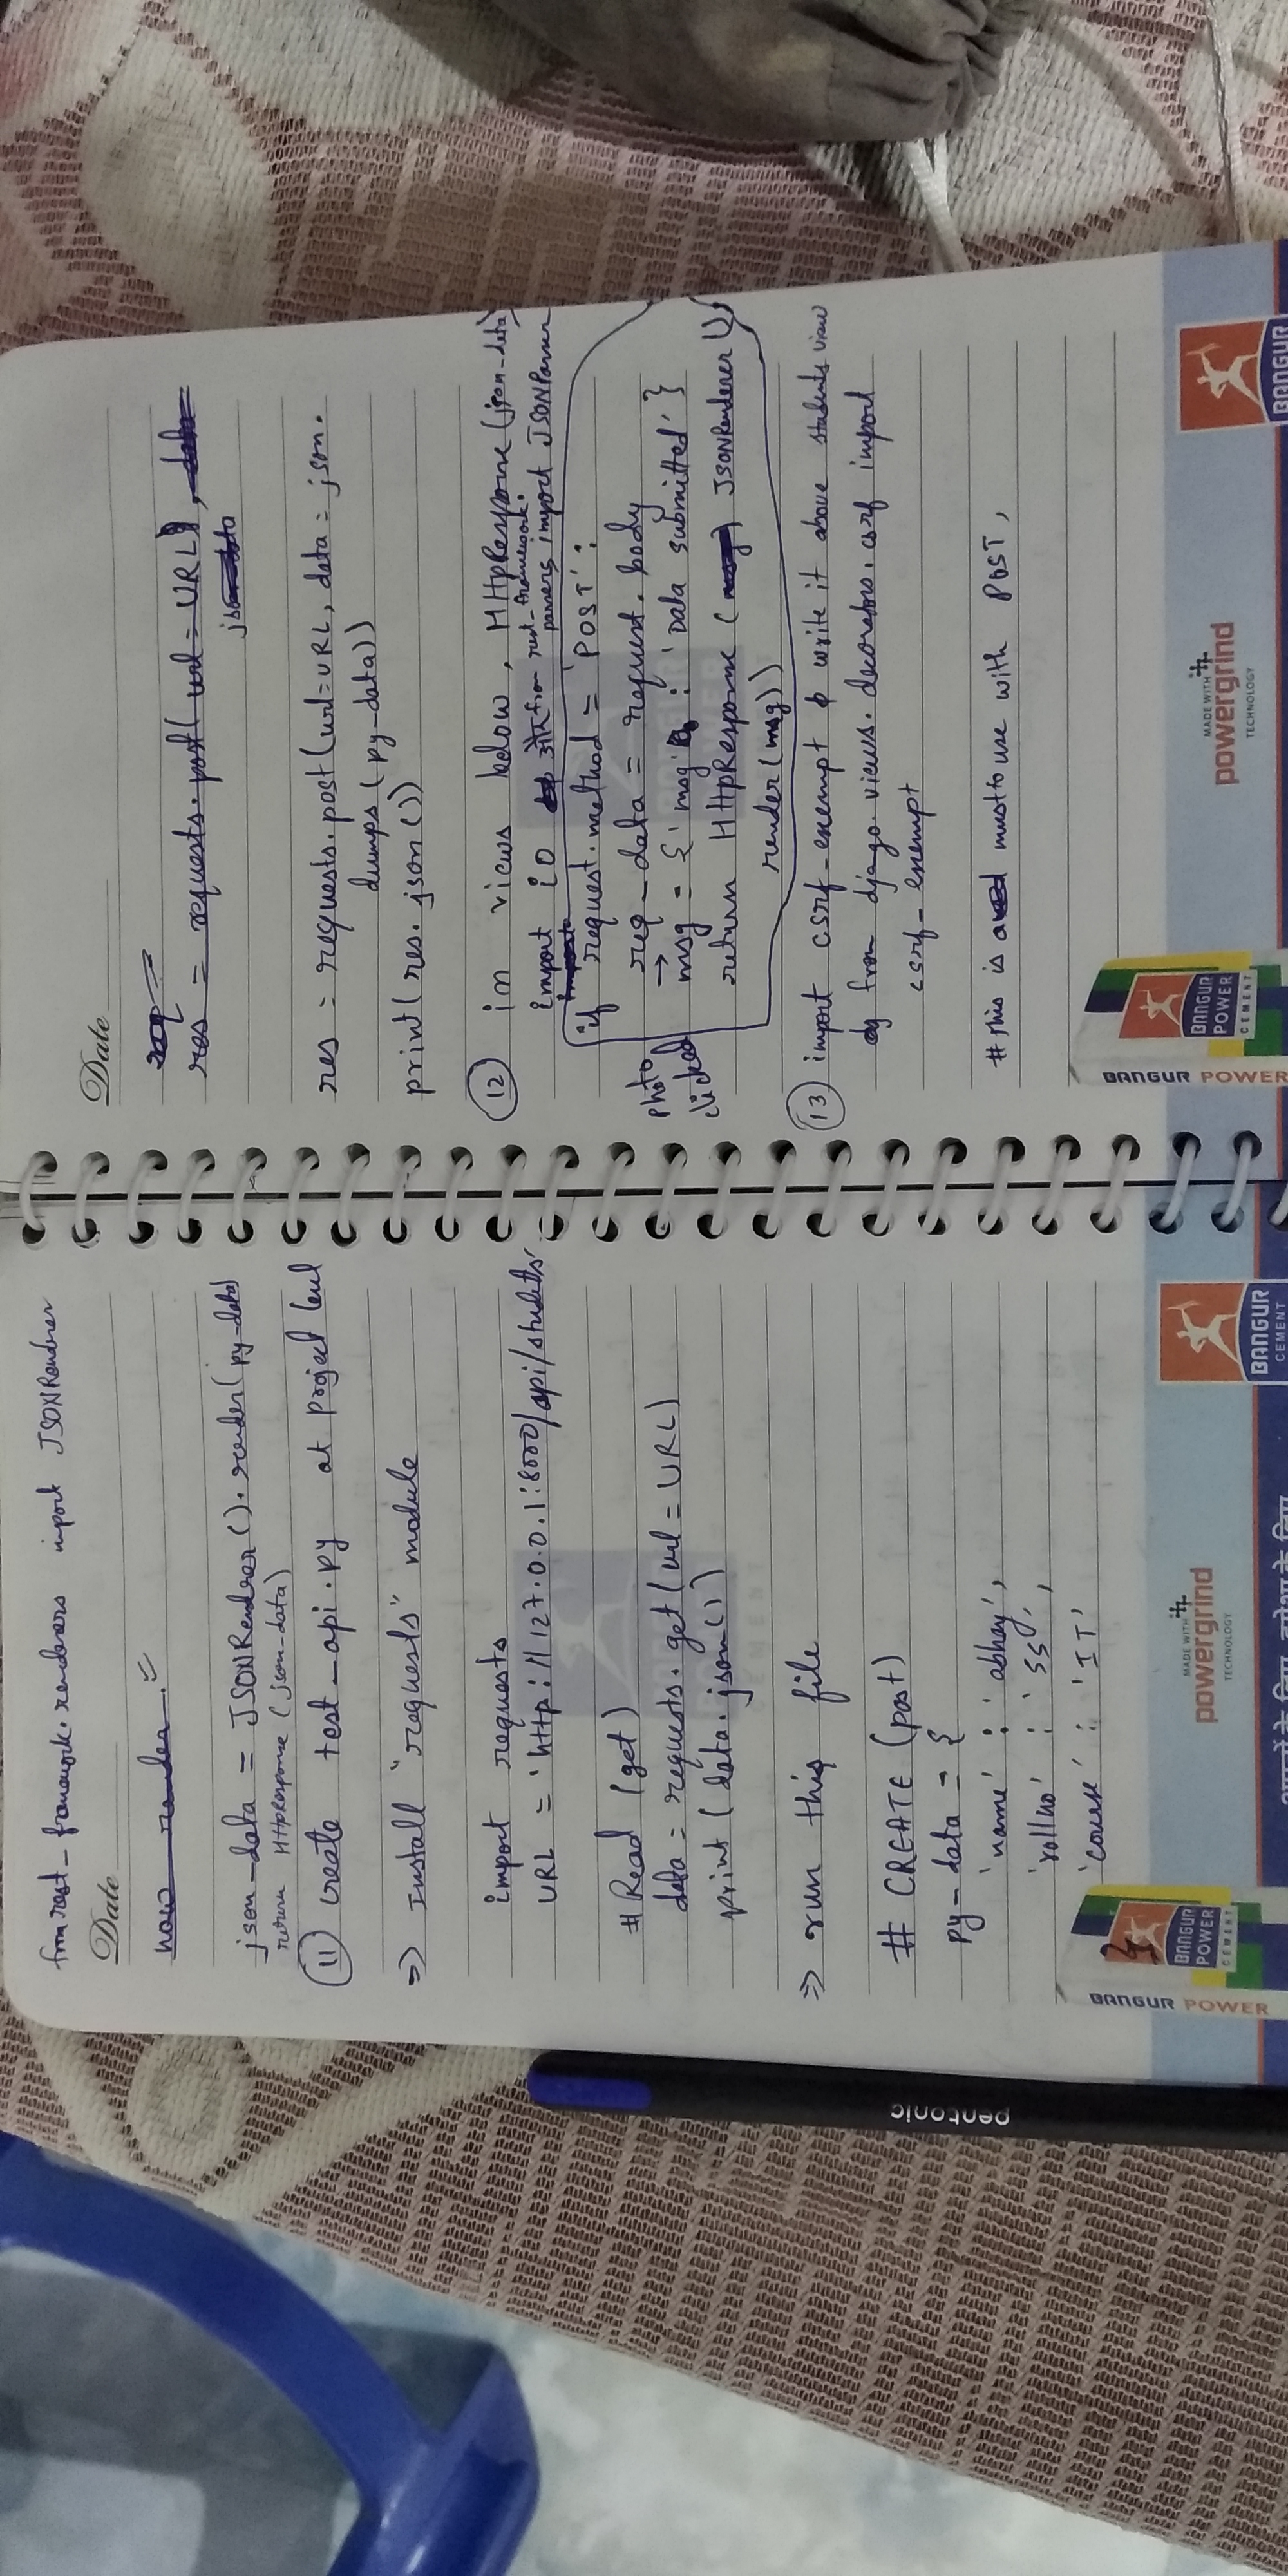 from rest_framework.renderers import JSONRenderer
Date
now render.
json_data = JSONRendrer().render(py-data)
return HttpResponse (json-data)
11 create test_api.py at project level
=> Install "requests" module
import requests
URL = 'http://127.0.0.1:8000/api/students'
#Read (get)
data = requests.get(url = URL)
print (data.json())
=> run this file
# CREATE (post)
py-data = {
'name' : 'abhay',
'rollno' : '55',
'course' : 'IT'
}
BANGUR POWER
BANGUR
POWER
CEMENT
MADE WITH
powergrind
TECHNOLOGY
BANGUR
CEMENT
Date
req
res = requests.post( url = URL), data
json-data
res = requests.post(url=URL, data = json.
dumps (py-data))
print(res.json())
12 in views below, HttpResponse (json-data)
import io from rest_framework.
parsers import JSONParser
import
if request.method = 'POST' :
req_data = request.body
photo
clicked
msg = {'msg' : 'Data submitted' }
return HttpResponse (msg) JSONRenderer ().
render(msg))
13 import csrf-exempt & write it above students view
from django.views.decorators.csrf import
csrf-exempt
#this is must to use with POST,
BANGUR POWER
BANGUR
POWER
CEMENT
MADE WITH
powergrind
TECHNOLOGY
BANGUR
pentonic